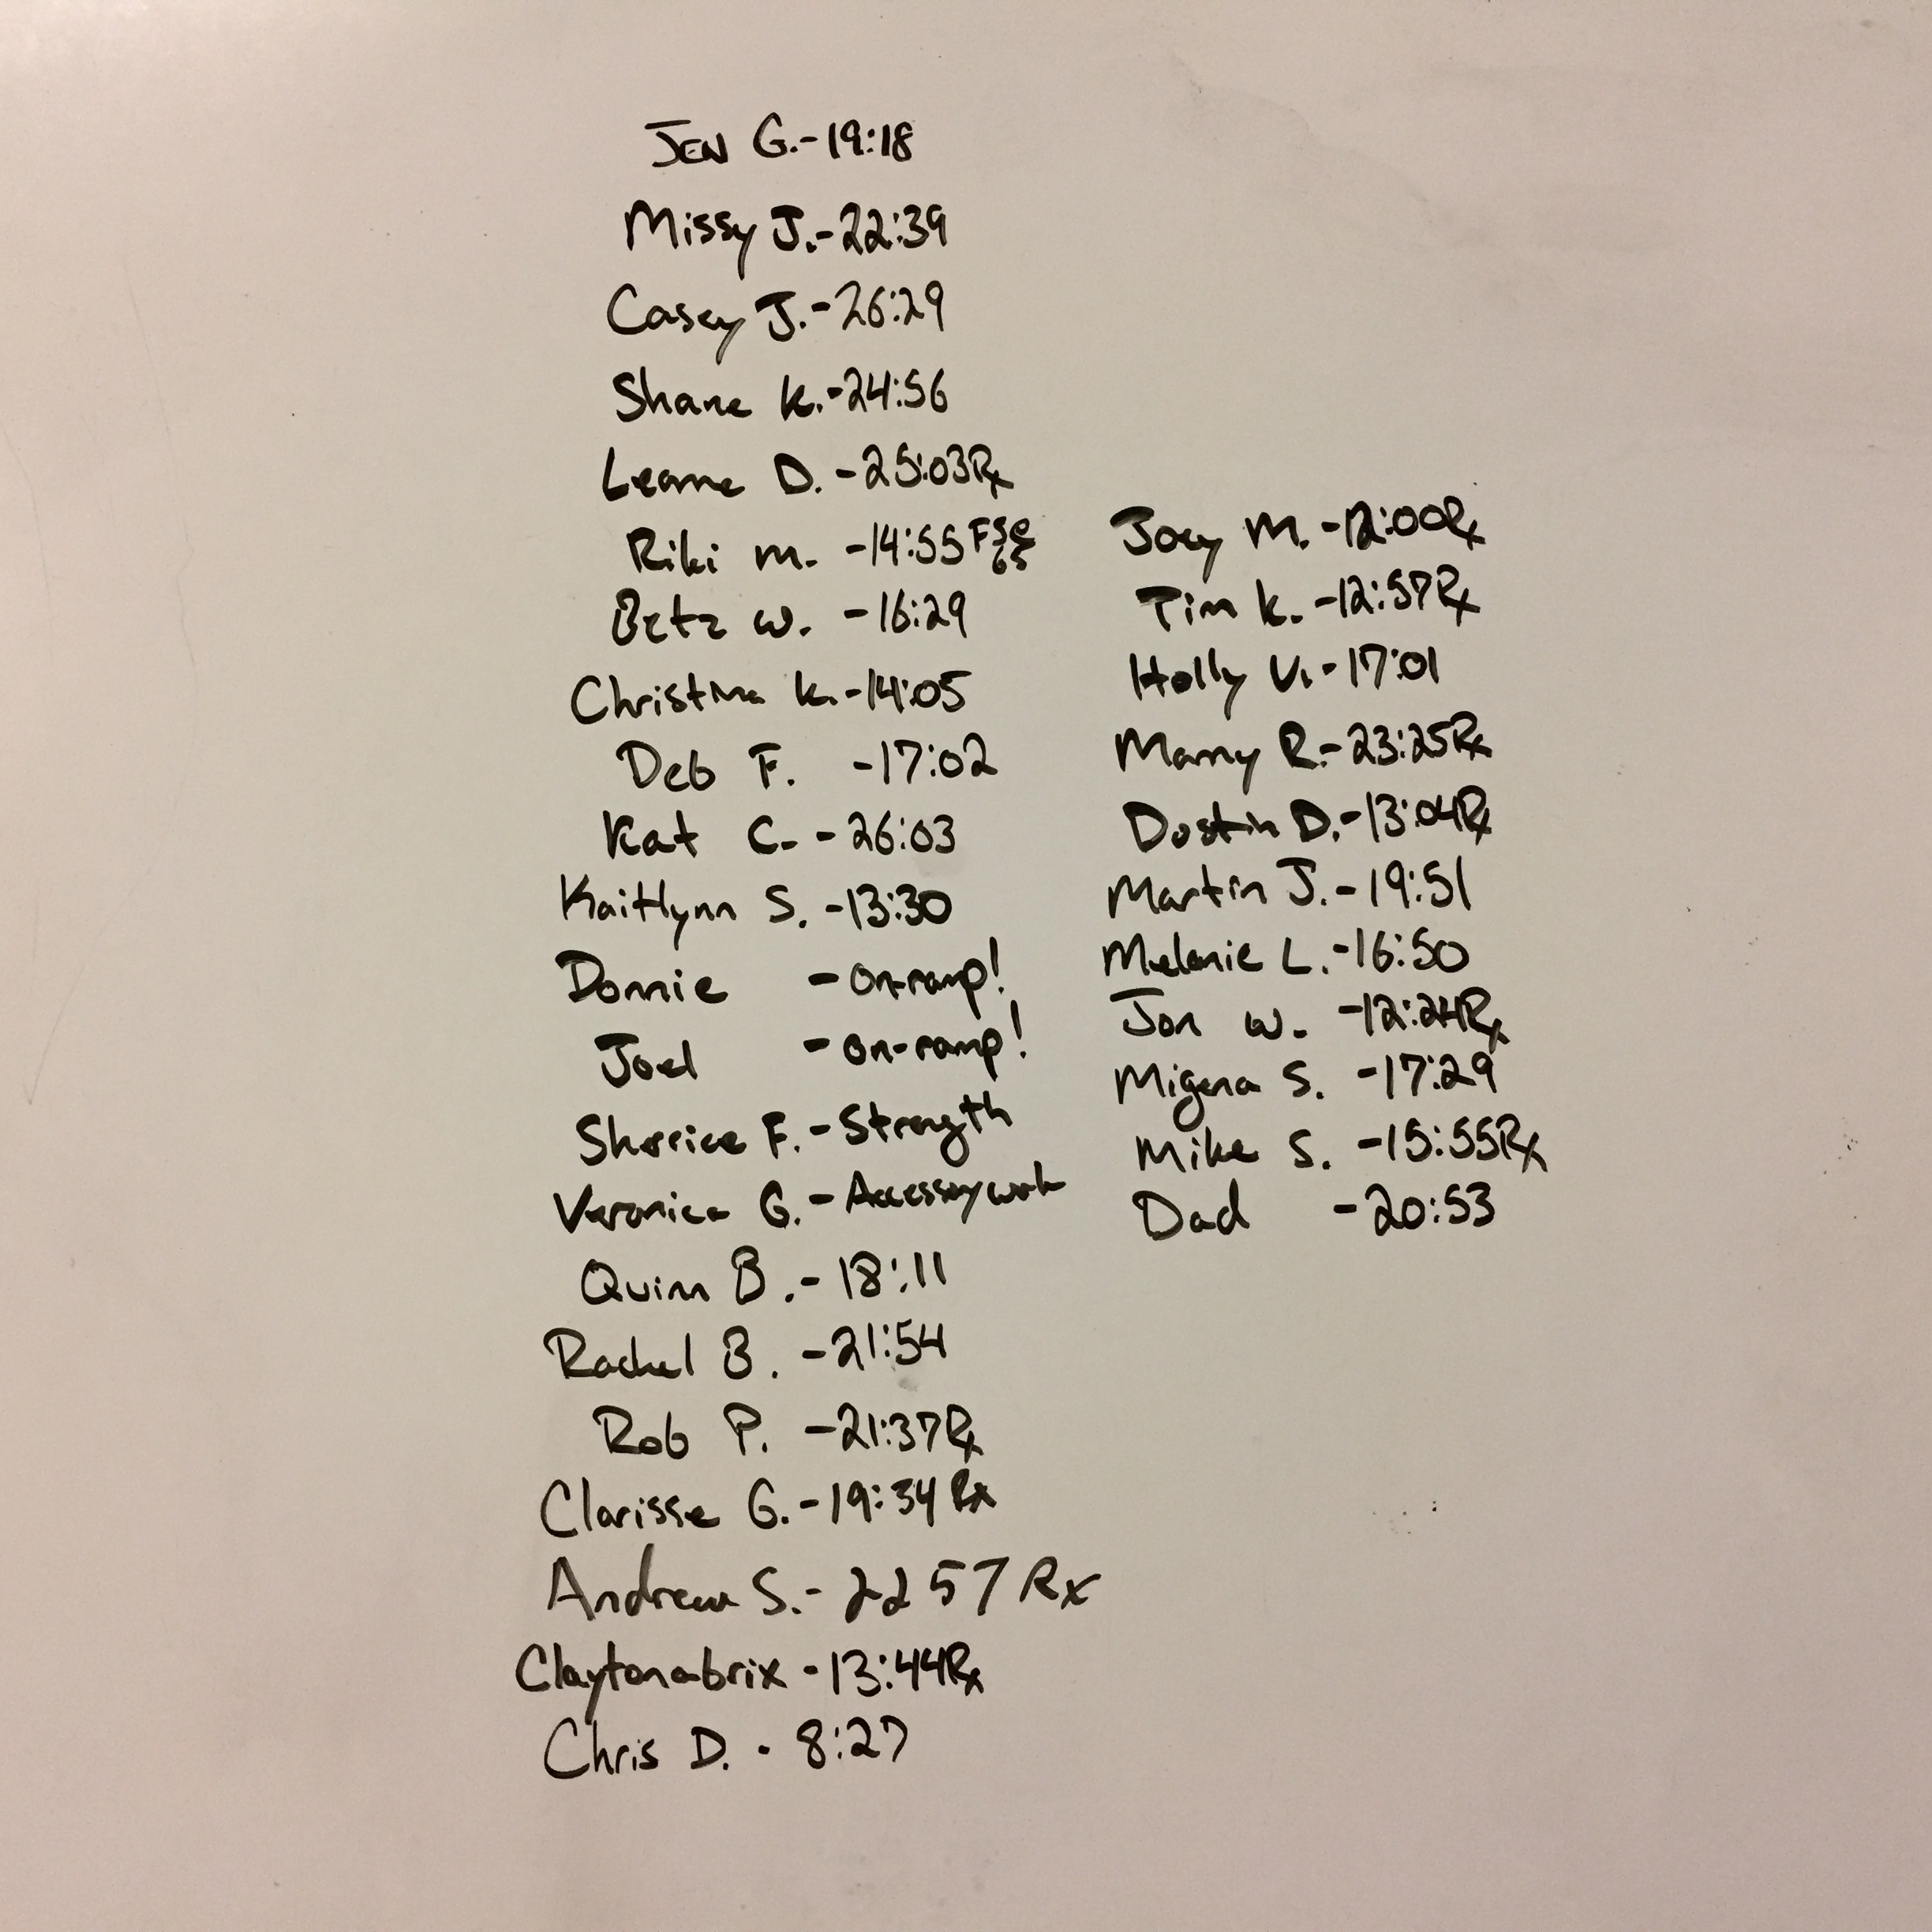 Jen G.-19:18
Missy J.-22:39
Casey J.-26:29
Shane K.-24:56
Leanne D.-25:03Rx
Riki M.-14:55
Betz W.-16:29
Christina K.-14:05
Deb F.-17:02
Kat C.-26:03
Kaitlynn S.-13:30
Donnie -On-ramp!
Joel -On-ramp!
Sherrice F.-Strength
Veronica G.-Accessory work
Quinn B.-18:11
Rachel B.-21:54
Rob P.-21:37Rx
Clarisse G.-19:34Rx
Andrew S.-22 57 Rx
Claytonabrix-13:44Rx
Chris D.-8:27
Joey M.-12:00Rx
Tim K.-12:57Rx
Holly V.-17:01
Manny R.-23:25Rx
Dustin D.-13:04Rx
Martin J.-19:51
Melanie L.-16:50
Jon W.-12:24Rx
Migena S.-17:29
Mike S.-15:55Rx
Dad -20:53